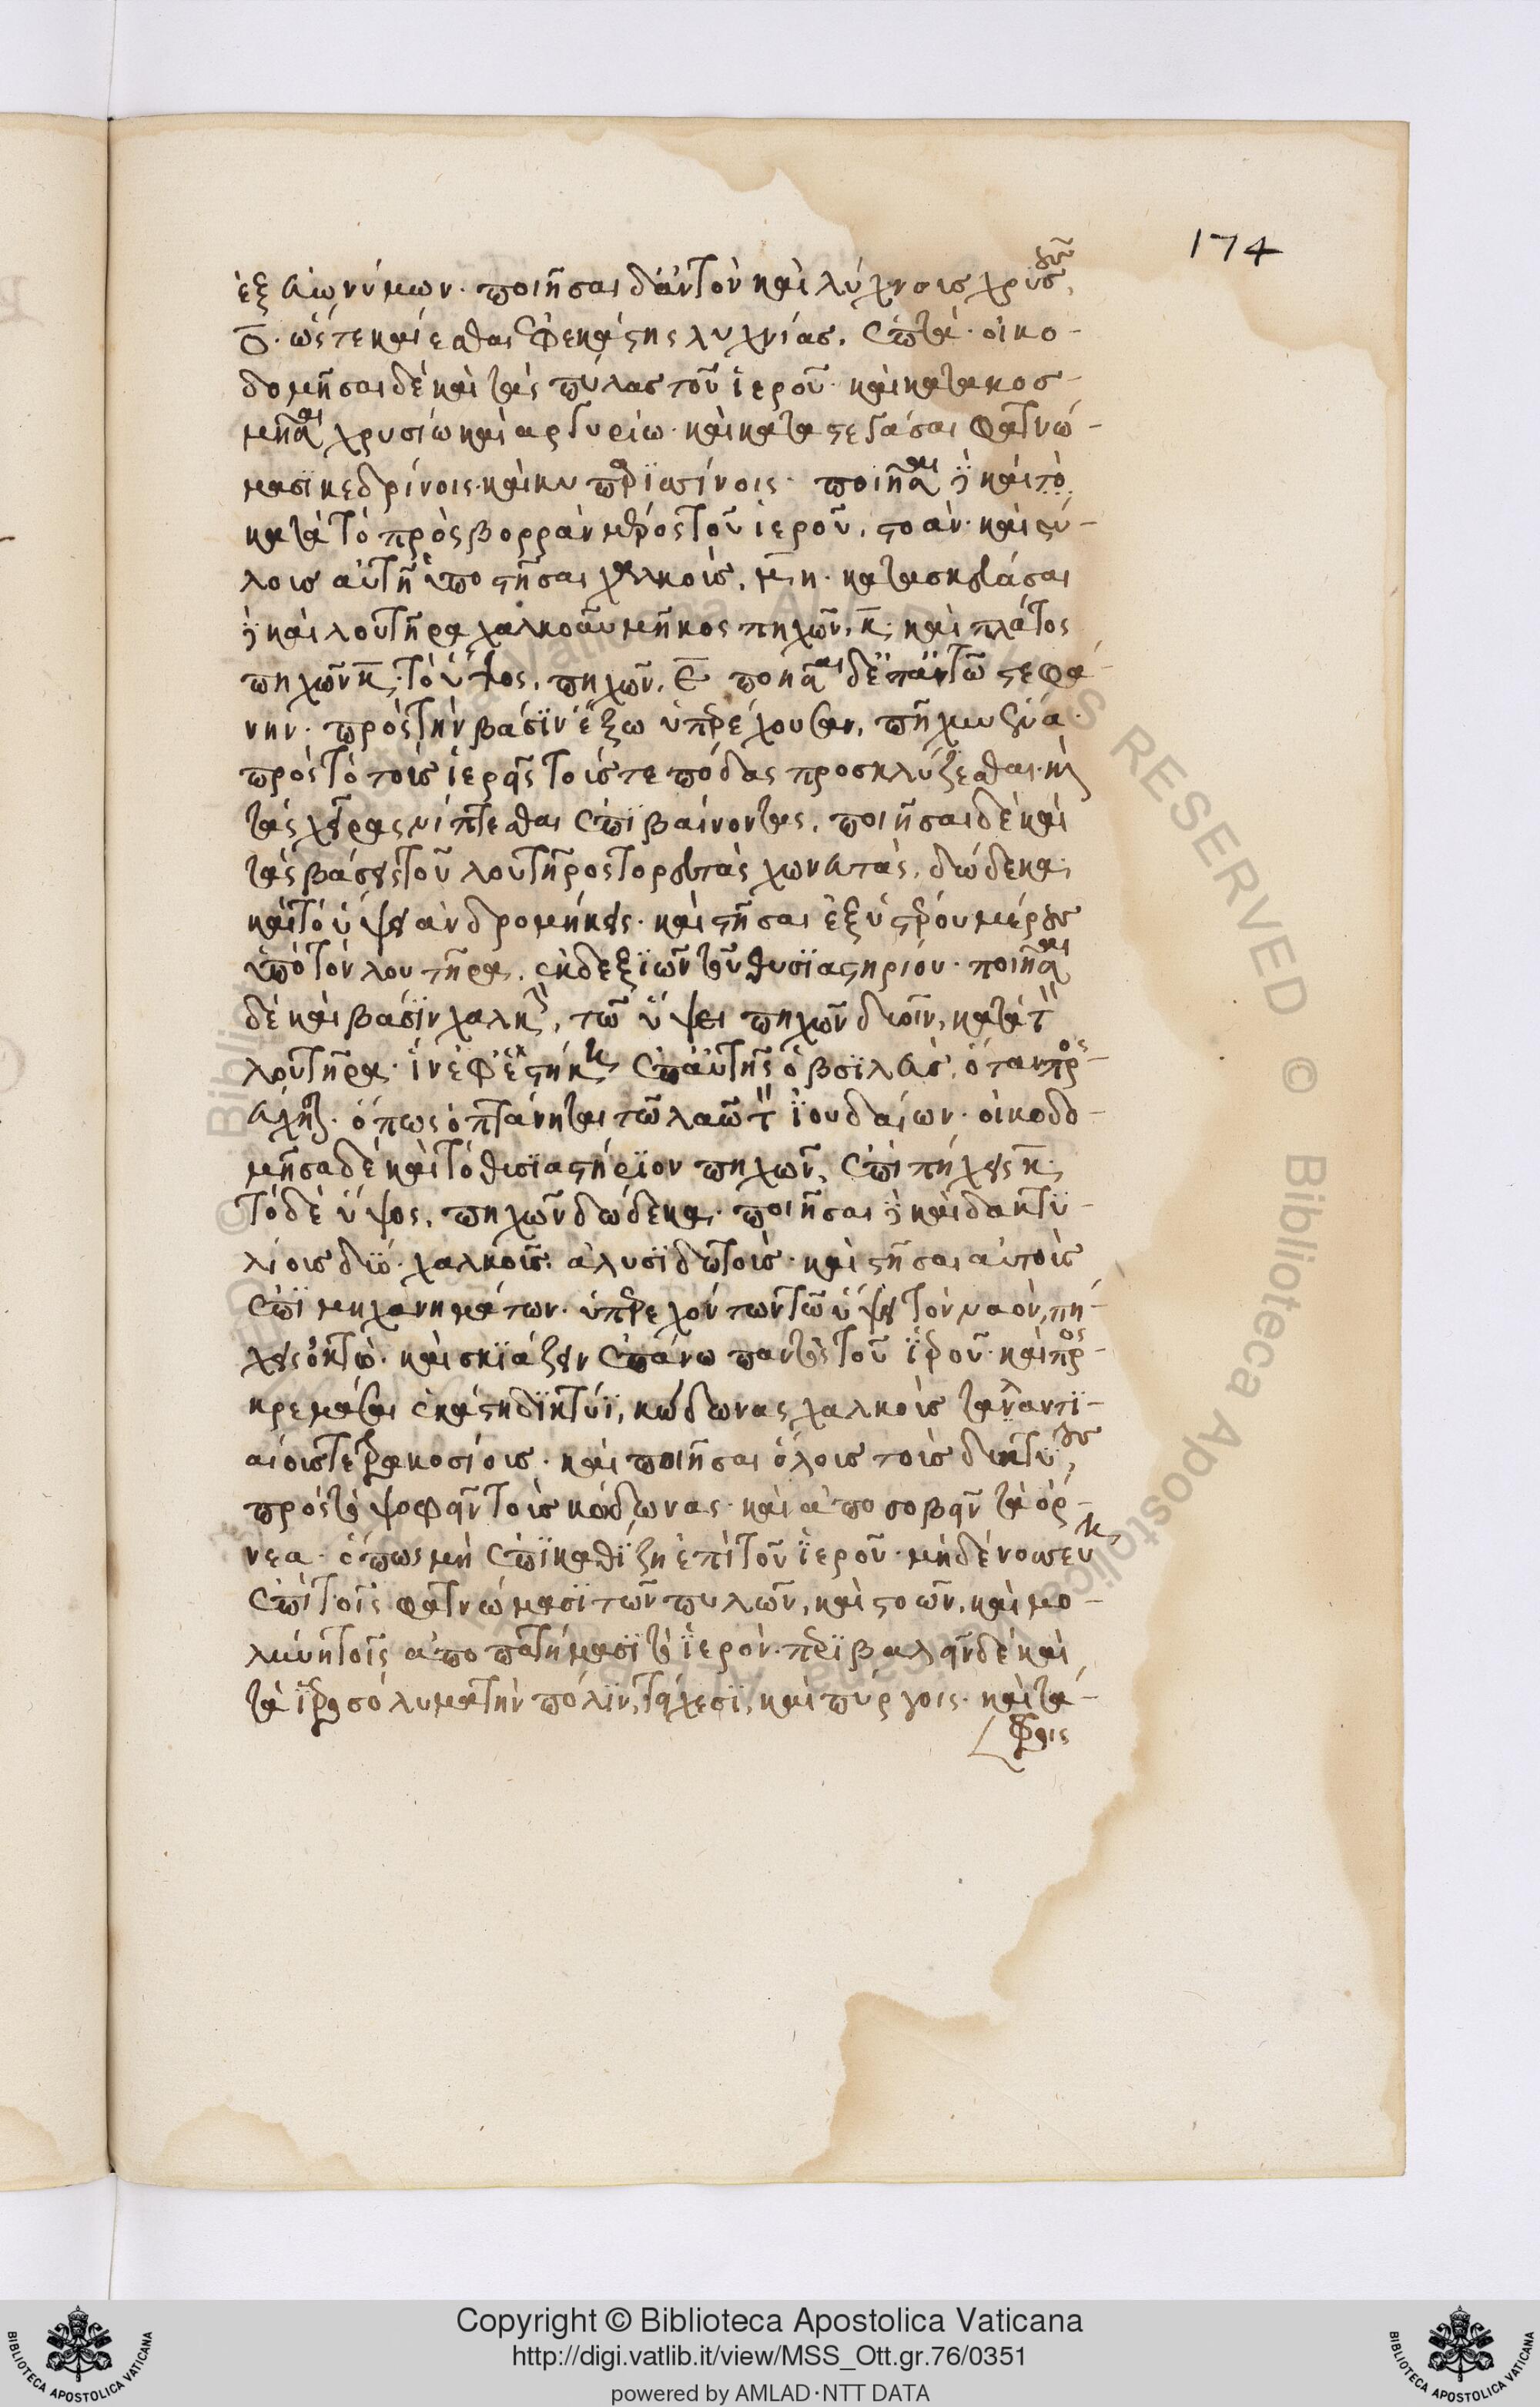 174
ἐξ εὐωνύμων. ποιῆσαι δ' αὐτὸν καὶ λύχνους χρυσοῦς,
ο̅. ὥστε καίεσθαι ἐφ' ἑκάστης λυχνίας, ἑπτά. οἰκο-
δομῆσαι δὲ καὶ τὰς πύλας τοῦ ἱεροῦ. καὶ κατακοσ-
μῆσαι χρυσίω καὶ αργυρίω. καὶ καταστεγάσαι φατνώ-
μασϊ κεδρίνοις. καὶ κυπαρϊσσίνοις. ποιῆσαι δὲ καὶ τὸ
κατὰ τὸ πρὸς βορρὰν μέρος τοῦ ἱεροῦ, στοάν. καὶ στύ-
λους αὐτῆ ὑποστῆσαι χαλκοῦς, μ̅η. κατασκευάσαι
δὲ καὶ λουτῆρα χαλκοῦν μῆκος πηχῶν, κ̅. καὶ πλάτος
πηχῶν κ̅. τὸ ὕψος, πηχῶν, ε̅ ποιῆσαι δὲ ἐπ' αὐτῶ στεφά-
νην. πρὸς τὴν βάσϊν ἔξω ὑπερέχουσαν, πῆχυν ἕνα.
πρὸς τὸ τοὺς ἱερεῖς τούς τε πόδας προσκλύζεσθαι. καὶ
τὰς χεῖρας νίπτεσθαι ἐπιβαίνοντας. ποιῆσαι δὲ καὶ
τὰς βάσεις τοῦ λουτῆρος τορευτὰς χωνευτὰς, δώδεκα.
καὶ τὸ ὕψει ἀνδρομήκεις. καὶ στῆσαι ἐξ ὑστέρου μέρους
ὑπὸ τὸν λουτῆρα, ἐκ δεξϊῶν τοῦ θυσϊαστηρίου. ποιῆσαι
δὲ καὶ βάσϊν χαλκῆν, τῶ ὕψει πηχῶν δυοῖν, κατὰ τὸν
λουτῆρα. ἵν' ἐφεστήκη ἐπ' αὐτῆς ὁ βασϊλεὺς, ὅταν προσ-
εύχηται. ὅπως ὀπτάνηται τῶ λαῶ τῶν ϊουδαίων. οἰκοδο-
μῆσα δὲ καὶ τὸ θυσϊαστήρϊον πηχῶν, ἐπὶ πήχεις κ̅.
τὸ δὲ ὕψος, πηχῶν δώδεκα. ποιῆσαι δὲ καὶ δακτυ-
λίους δύο. χαλκοῦς. ἁλυσϊδωτοὺς. καὶ στῆσαι αὐτοὺς
ἐπὶ μηχανημάτων. ὑπερεχόντων τῶ ὕψει τὸν ναὸν, πή-
χεις ὀκτώ. καὶ σκϊάζειν ἐπάνω παντὸς τοῦ ϊεροῦ. καὶ προσ-
κρεμάσαι ἑκάστη δϊκτύϊ, κώδωνας χαλκοὺς ταλαντϊ-
αίους τετρακοσίους. καὶ ποιῆσαι ὅλους τοὺς δικτύους,
πρὸς τὸ ψοφεῖν τοὺς κώδωνας. καὶ ἀποσοβεῖν τὰ ὄρ-
νεα. ὅπως μὴ ἐπϊκαθίζη ἐπὶ τοῦ ϊεροῦ. μηδὲ νοσσεύη
ἐπὶ τοῖς φατνώμασϊ τῶν πυλῶν, καὶ στοῶν, καὶ μο-
λύνη τοῖς ἀποπατήμασϊ τὸ ϊερόν. περϊβαλεῖν δὲ καὶ
τὰ ϊεροσόλυμα τὴν πόλϊν, τείχεσϊ, καὶ πύργοις. καὶ τά-
φροις
Copyright © Biblioteca Apostolica Vaticana
http://digi.vatlib.it/view/MSS_Ott.gr.76/0351
powered by AMLAD·NTT DATA